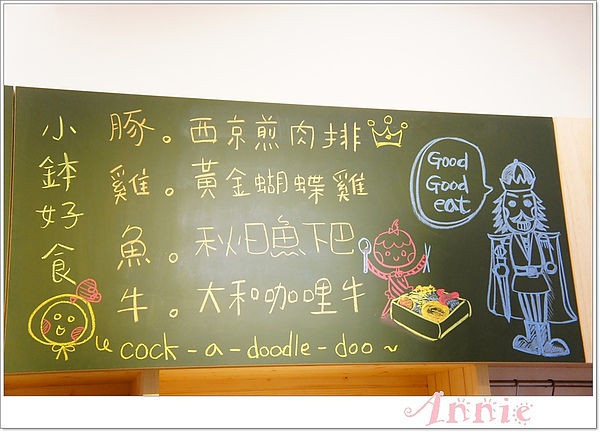 小鉢好食
豚。西京煎肉排
雞。黃金蝴蝶雞
魚。秋日魚下巴
牛。大和咖哩牛
Good
Good
eat
cock-a-doodle-doo~
Annie